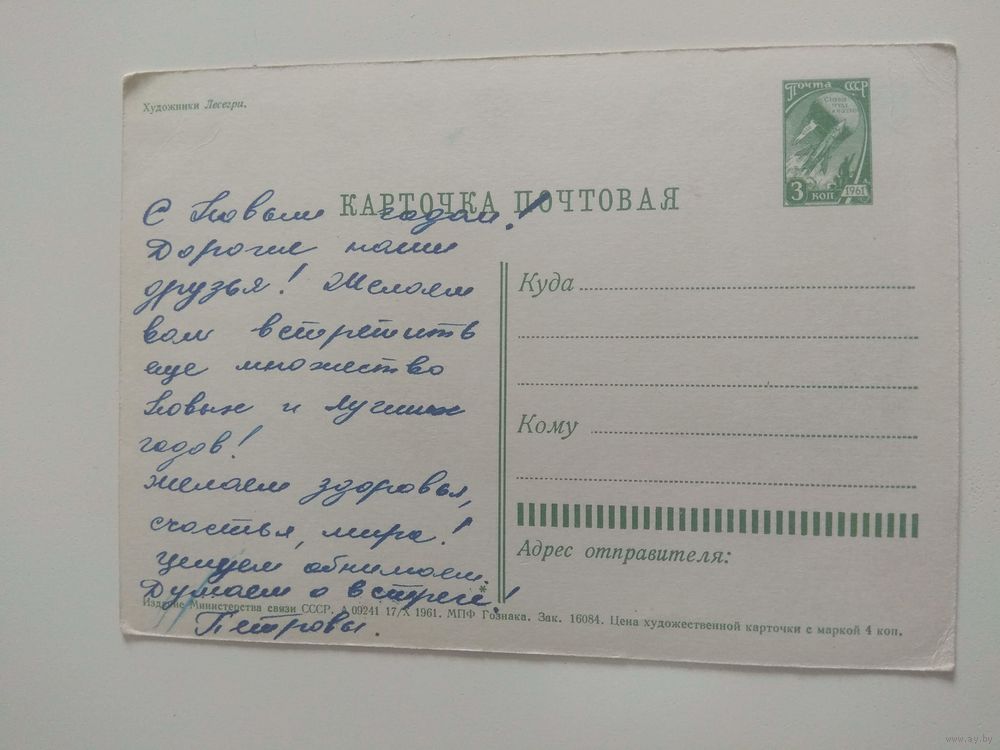 Художники Лесегри.
Почта СССР
Слава
труду
и науке!
3 коп 1961
КАРТОЧКА ПОЧТОВАЯ
С Новым годом!
Дорогие наши
друзья! Желаем
вам встретить
еще множество
Новых и лучших
годов!
Желаем здоровья,
счастья, мира!
Целуем обнимаем.
Думаем о встрече!
Петровы.
Куда
Кому
Адрес отправителя:
Издание Министерства связи СССР. А 09241 17/X 1961. МПФ Гознака. Зак. 16084. Цена художественной карточки с маркой 4 коп.
www.ay.by